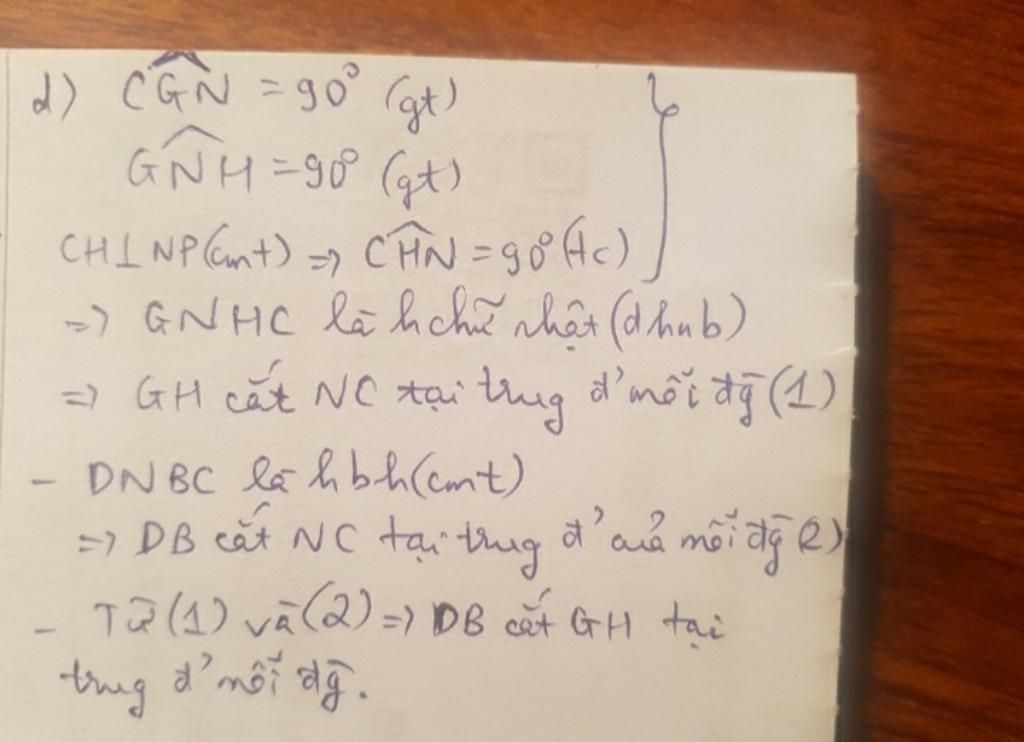 d) CGN = 90° (gt)
GNH = 90° (gt)
CH⊥NP(cmt) => CHN = 90° (tc)
=> GNHC là hchữ nhật (dhnb)
=> GH cắt NC tại trug đ' mỗi đg̀ (1)
- DNBC là hbh(cmt)
=> DB cắt NC tại trug đ' của mỗi đg̀ (2)
- Từ (1) và (2) => DB cắt GH tại
trug đ' mỗi đg̀.